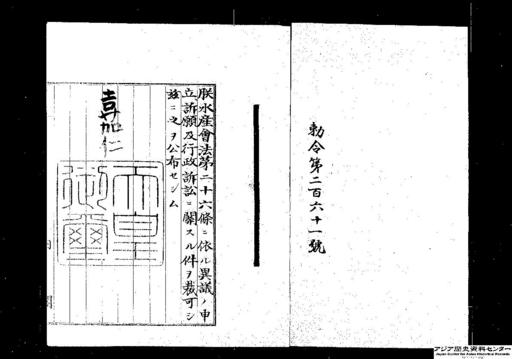 勅令第二百六十一號
朕水産會法第二十六條ニ依ル異議ノ申
立訴願及行政訴訟ニ關スル件ヲ裁可シ
玆ニ之ヲ公布セシム
嘉仁
天皇
御璽
アジア歴史資料センター
Japan Center for Asian Historical Records